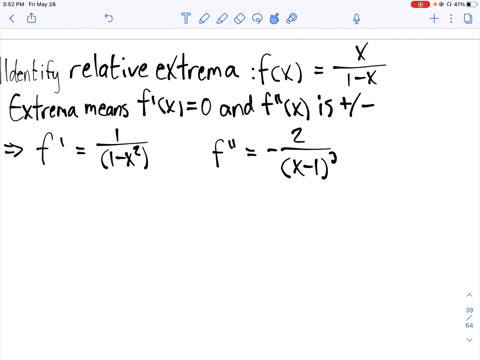 3:52 PM Fri May 28
41%
Identify relative extrema : f(x) = x / 1-x
Extrema means f'(x)=0 and f"(x) is +/-
⇒ f' = 1 / (1-x²) f" = - 2 / (x-1)³
39
/
64